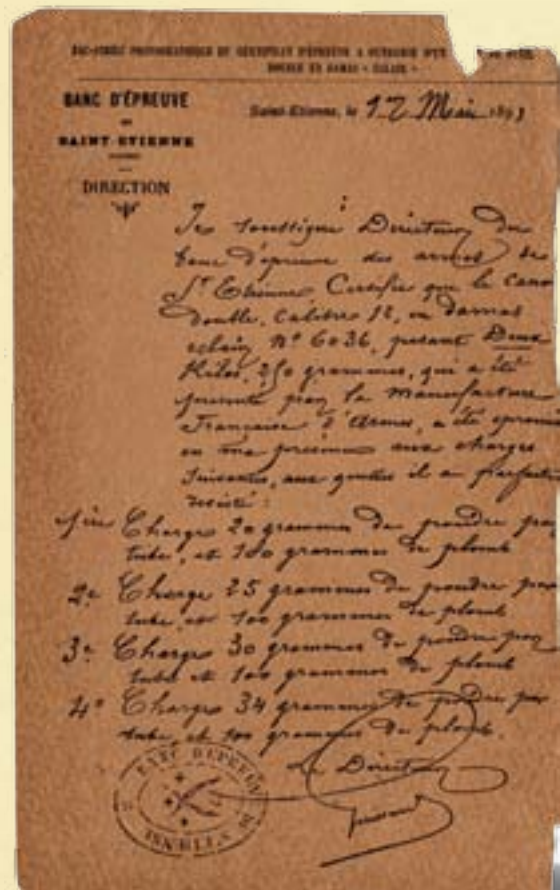 FAC-SIMILÉ PHOTOGRAPHIQUE DU CERTIFICAT D'ÉPREUVE A OUTRANCE D'UN
DOUBLE EN DAMAS « ÉCLAIR »
BANC D'ÉPREUVE
DE
SAINT-ETIENNE
DIRECTION
Saint-Etienne, le 12 Mai 1893
Je soussigné Directeur du
banc d'épreuve des armes de
St Etienne, Certifie que le canon
double, Calibre 12, en damas
éclair, N° 6036, pesant Deux
Kilos, 250 grammes, qui a été
présenté par la Manufacture
Française d'Armes, a été éprouvé
en ma présence aux charges
suivantes, aux quelles il a parfaitem
résisté :
1ère Charge 20 grammes de poudre par
tube, et 100 grammes de plomb
2e Charge 25 grammes de poudre par
tube, et 100 grammes de plomb
3e Charge 30 grammes de poudre par
tube et 100 grammes de plomb
4e Charge 34 grammes de poudre par
tube, et 100 grammes de plomb.
Le Directeur
BANC D'EPREUVE DE ST ETIENNE